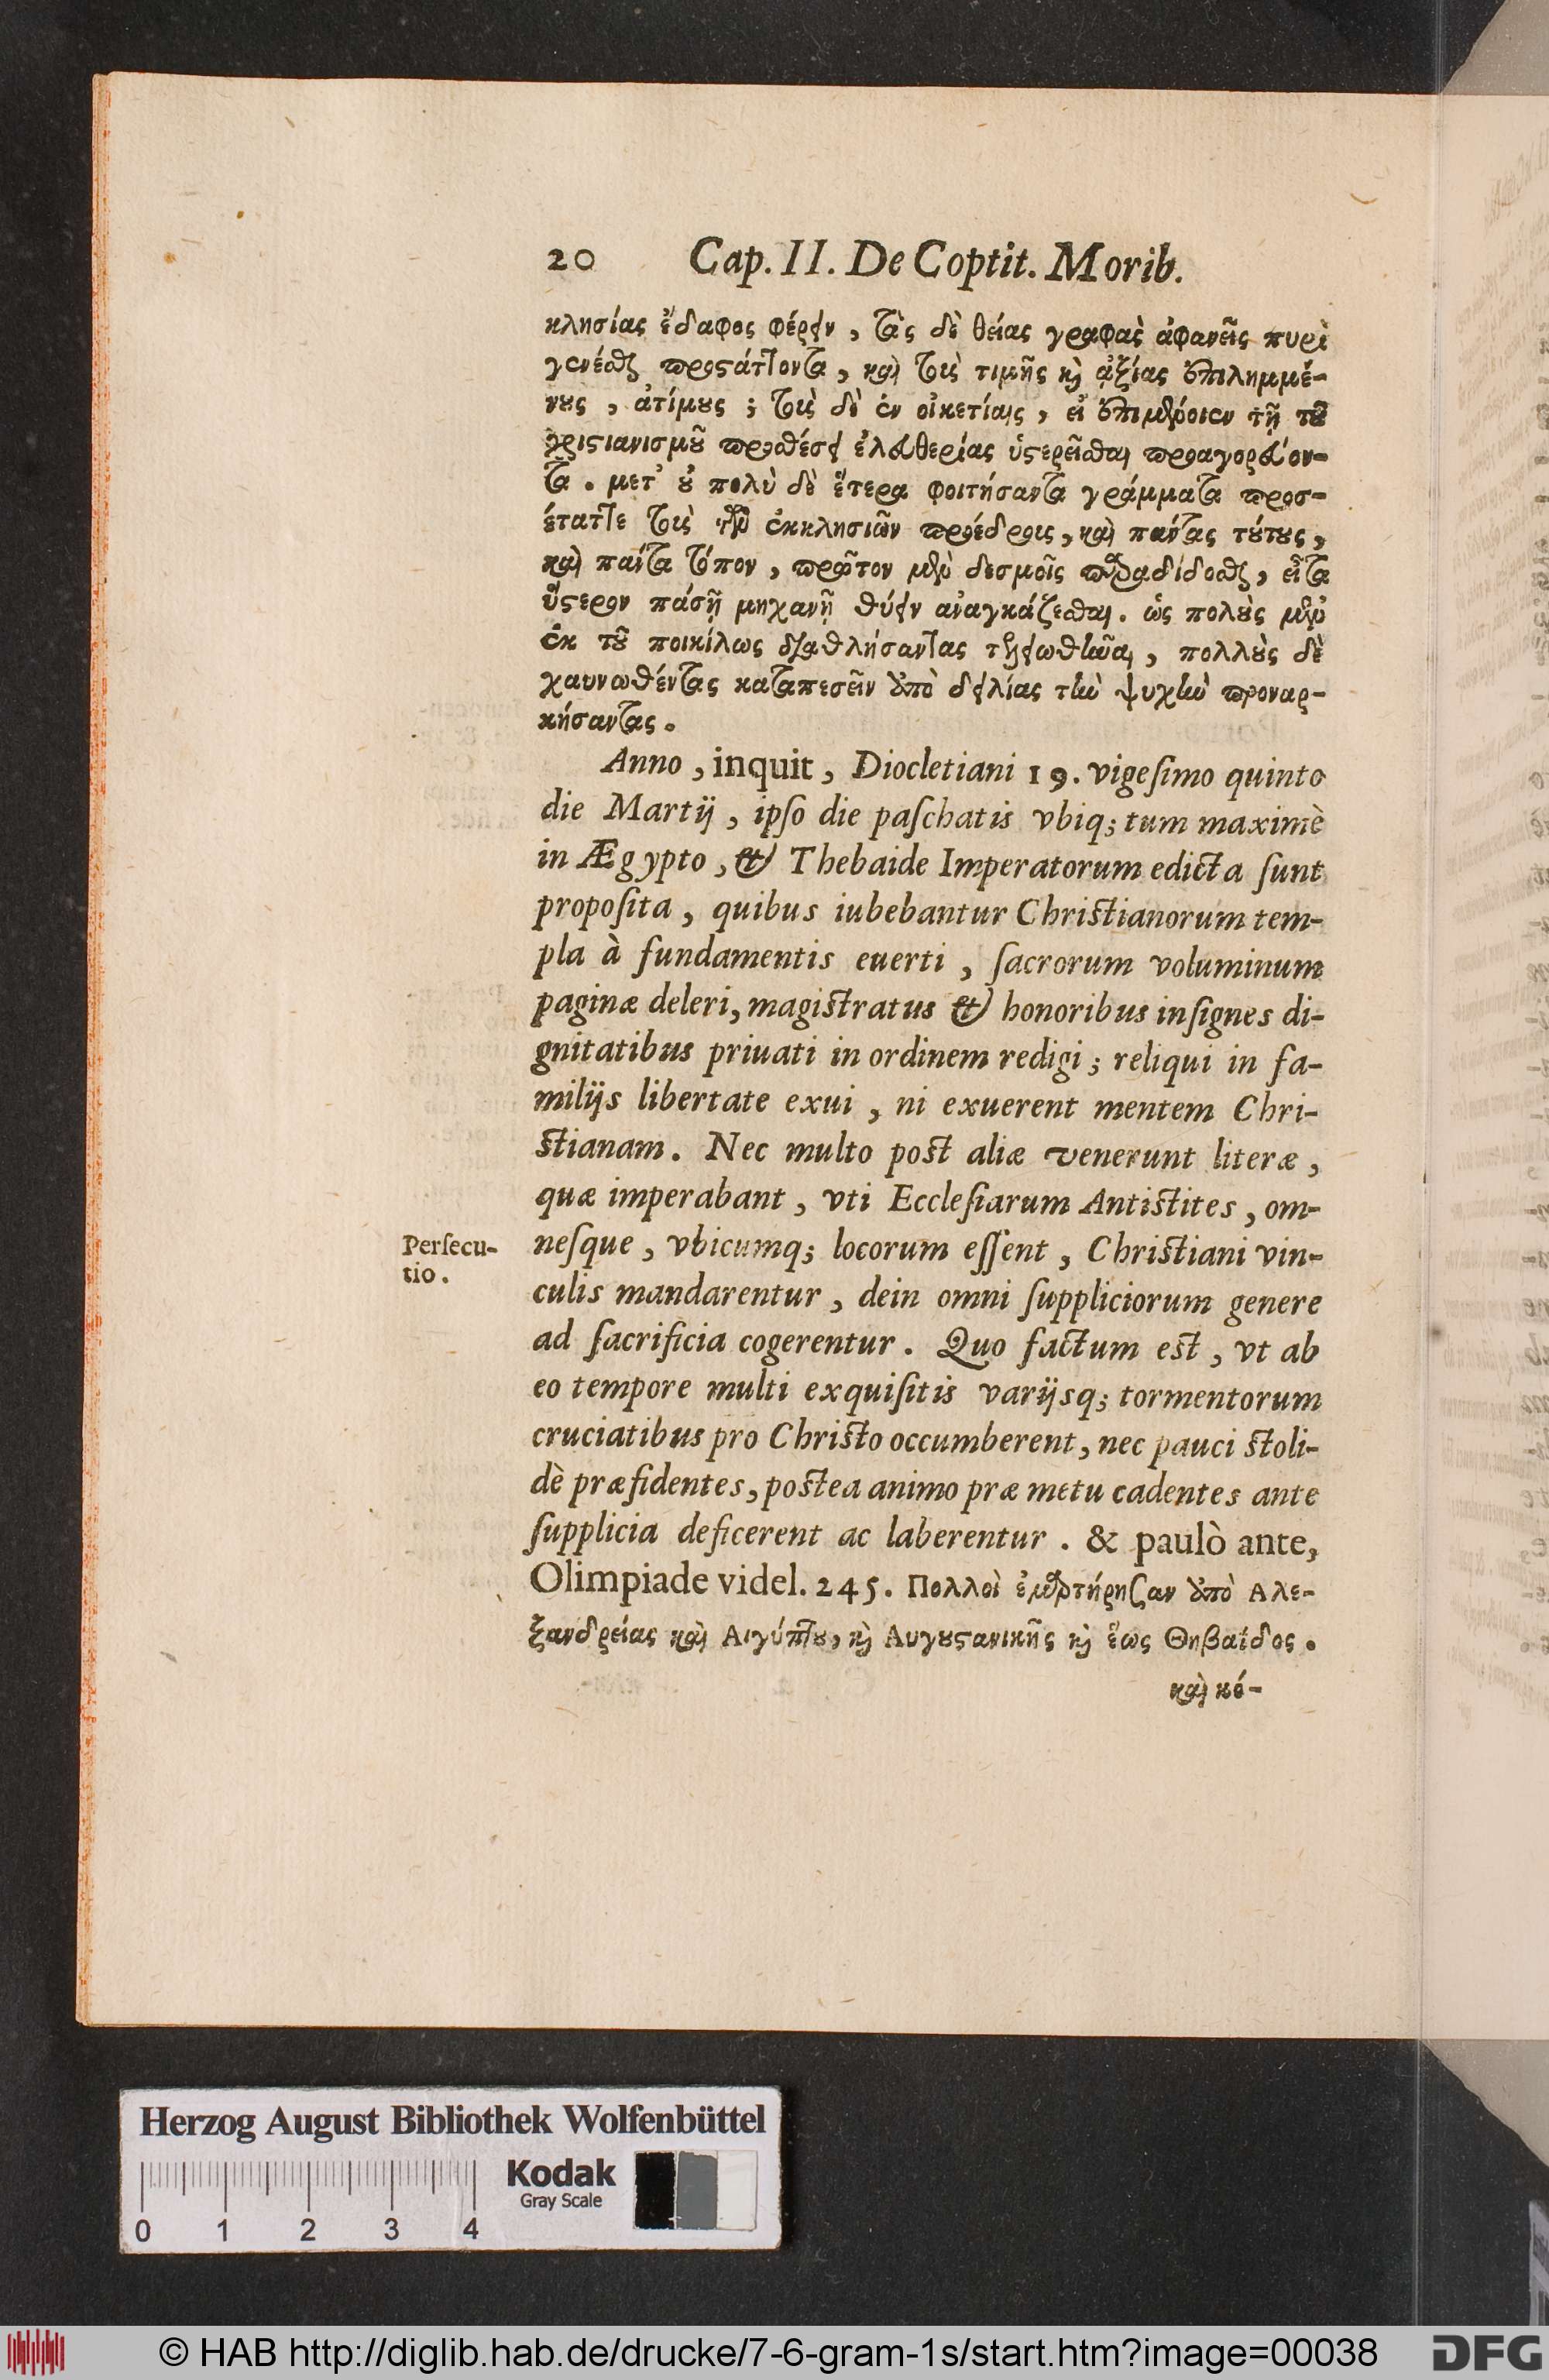 20 Cap. II. De Coptit. Morib.
κλησίας ἔδαφος φέρειν, τὰς δὲ θείας γραφὰς ἀφανεῖς πυρὶ
γενέσθαι προςάττοντα, καὶ τοὺς τιμῆς καὶ ἀξίας ἐπιλημμέ-
νους, ἀτίμους; τοὺς δὲ ἐν οἰκετίαις, εἰ ἐπιμένοιεν τῇ τοῦ
χριςιανισμοῦ προθέσει ἐλευθερίας ὑςερεῖσθαι προαγορεύον-
τα. μετ' οὐ πολὺ δὲ ἕτερα φοιτήσαντα γράμματα προσ-
έταττε τοὺς τῶν ἐκκλησιῶν προέδρους, καὶ πάντας τούτους,
καὶ πάντα τόπον, πρῶτον μὲν δεσμοῖς παραδίδοσθαι, εἶτα
ὕςερον πάσῃ μηχανῇ θύειν ἀναγκάζεσθαι. ὡς πολοὺς μὲν
ἐκ τοῦ ποικίλως διαθλήσαντας τελειωθῆναι, πολλοὺς δὲ
χαυνωθέντας καταπεσεῖν ὑπὸ δειλίας τὴν ψυχὴν προναρ-
κήσαντας.
Anno, inquit, Diocletiani 19. vigeſimo quinto
die Martij, ipſo die paſchatis vbiq; tum maximè
in Ægypto, & Thebaide Imperatorum edicta ſunt
propoſita, quibus iubebantur Chriſtianorum tem-
pla à fundamentis euerti, ſacrorum voluminum
paginæ deleri, magiſtratus & honoribus inſignes di-
gnitatibus priuati in ordinem redigi; reliqui in fa-
milijs libertate exui, ni exuerent mentem Chri-
ſtianam. Nec multo poſt aliæ venerunt literæ,
quæ imperabant, vti Eccleſiarum Antiſtites, om-
Perſecu-
tio.
neſque, vbicumq; locorum eſſent, Chriſtiani vin-
culis mandarentur, dein omni ſuppliciorum genere
ad ſacrificia cogerentur. Quo factum eſt, vt ab
eo tempore multi exquiſitis varijsq; tormentorum
cruciatibus pro Chriſto occumberent, nec pauci ſtoli-
dè præfidentes, poſtea animo præ metu cadentes ante
ſupplicia deficerent ac laberentur. & paulò ante,
Olimpiade videl. 245. Πολλοὶ ἐμαρτήρησαν ὑπὸ Αλε-
ξανδρείας καὶ Αιγύπτου, καὶ Αυγουςανικῆς καὶ ἕως Θηβαίδος.
καὶ κό-
Herzog August Bibliothek Wolfenbüttel
Kodak
Gray Scale
0 1 2 3 4
© HAB http://diglib.hab.de/drucke/7-6-gram-1s/start.htm?image=00038 DFG